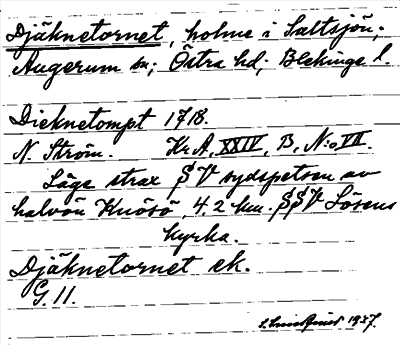 Djäknetornet, holme i Saltsjön;
Augerum sn; Östra hd; Blekinge l.
Dieknetompt 1718.
N. Ström. Kr. A, XXIV, B, N:o VII.
Läge strax SV sydspetsen av
halvön Knösö, 4.2 km. SSV Lösens
kyrka.
Djäknetornet ek.
G. 11.
1937